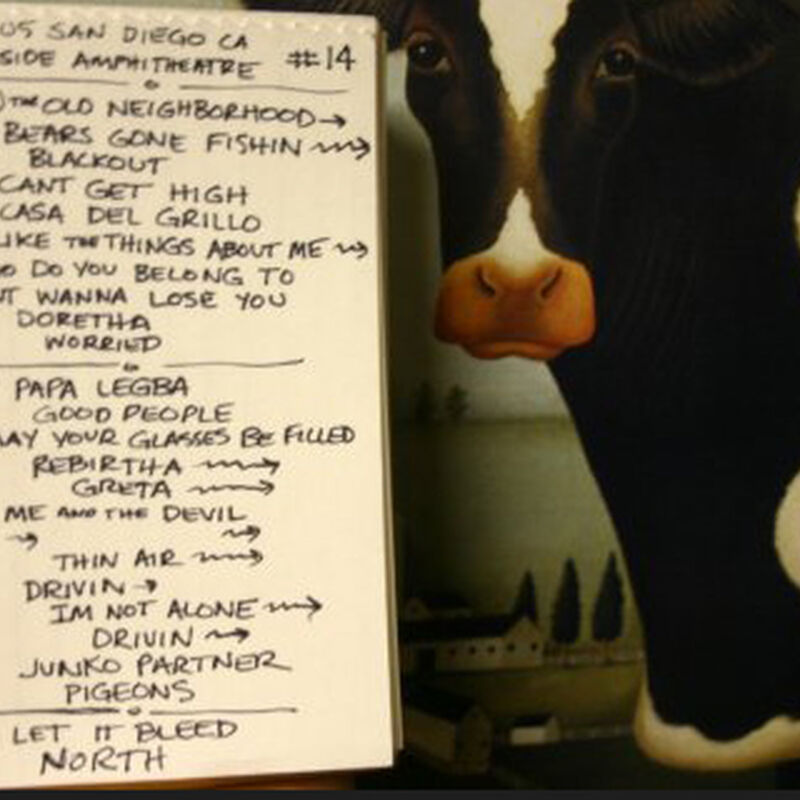 US SAN DIEGO CA
SIDE AMPHITHEATRE #14
THE OLD NEIGHBORHOOD →
BEARS GONE FISHIN →
BLACKOUT
CANT GET HIGH
CASA DEL GRILLO
LIKE THE THINGS ABOUT ME →
O DO YOU BELONG TO
T WANNA LOSE YOU
DORETHA
WORRIED
PAPA LEGBA
GOOD PEOPLE
AY YOUR GLASSES BE FILLED
REBIRTHA →
GRETA →
ME AND THE DEVIL
→ →
THIN AIR →
DRIVIN →
IM NOT ALONE →
DRIVIN →
JUNKO PARTNER
PIGEONS
LET IT BLEED
NORTH